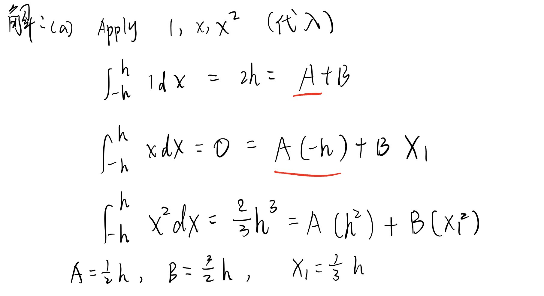 解:(a) Apply 1, x, x² (代入)
∫₋ₕʰ 1dx = 2h = A + B
∫₋ₕʰ xdx = 0 = A(-h) + B X₁
∫₋ₕʰ x²dx = 2/3 h³ = A(h²) + B(X₁²)
A = 1/2 h, B = 3/2 h, X₁ = 1/3 h